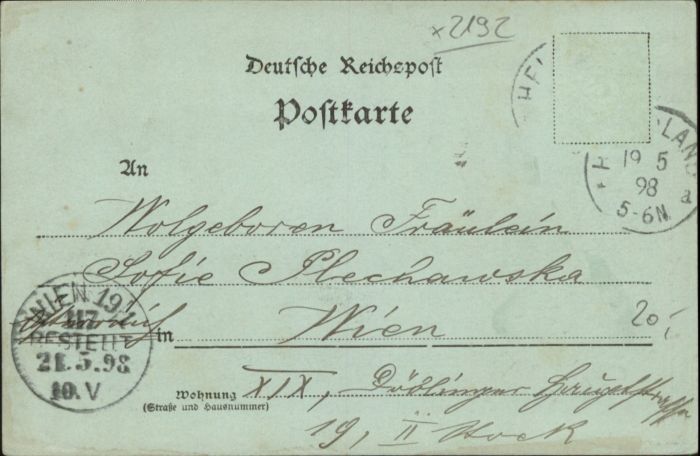 x2192
Deutsche Reichspost
Postkarte
HEL
LAND
19 5
98
5-6N.
a
An
Wolgeboren Fräulein
Sofie Plechawska
WIEN 19/1
117
BESTELLT
21.5.98
10.V
in Wien
20,-
Wohnung XIX, Döblinger Hauptstrasse
(Straße und Hausnummer)
19, II Stock